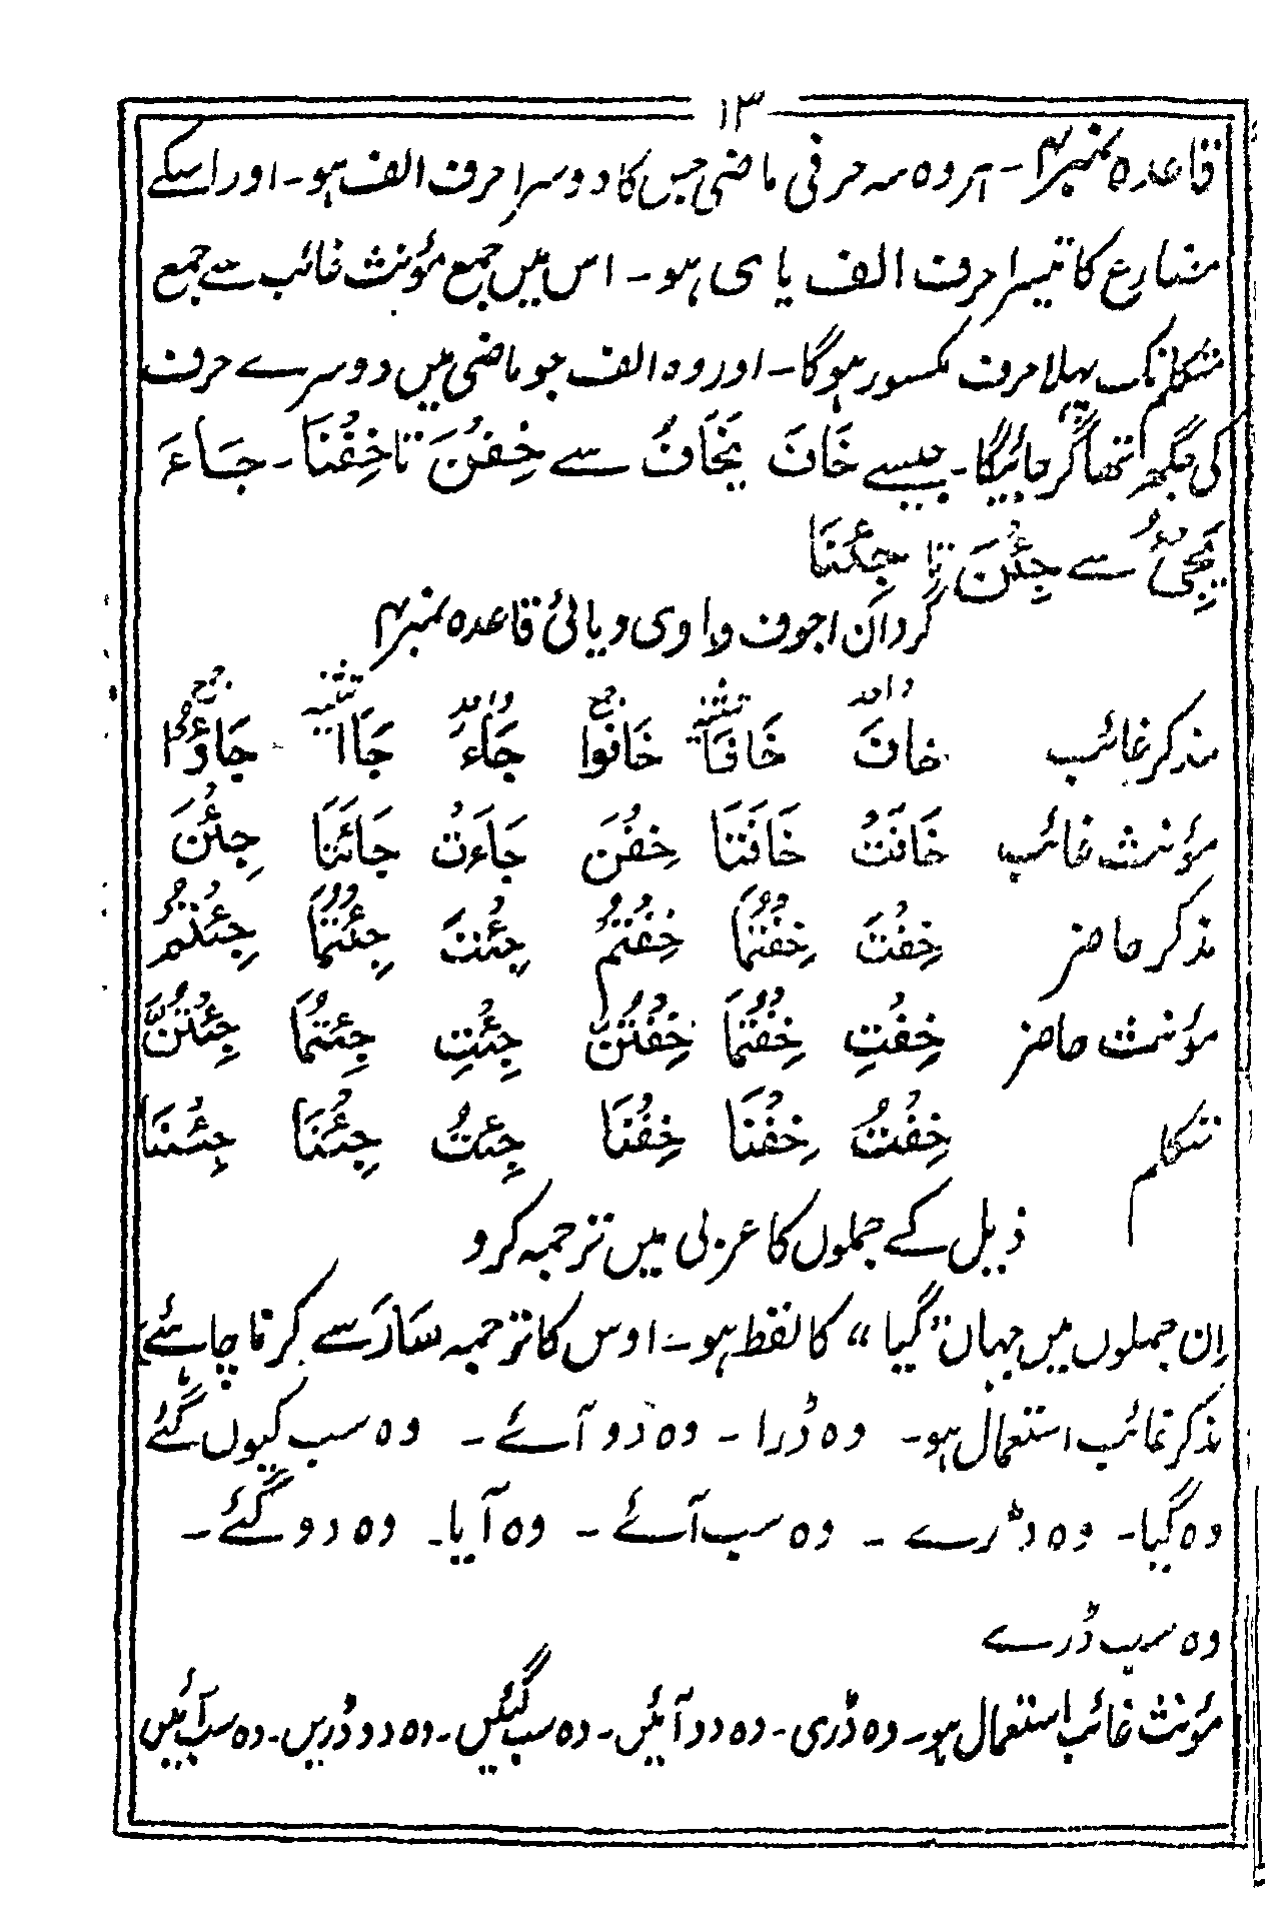 ۱۳
قاعدہ نمبر۴ ۔ ہر وہ سہ حرفی ماضی جس کا دوسرا حرف الف ہو۔ اور اسکے
مضارع کا تیسرا حرف الف یا ی ہو۔ اس میں جمع مؤنث غائب سے جمع
متکلم تک پہلا حرف مکسور ہوگا۔ اور وہ الف جو ماضی میں دوسرے حرف
کی جگہ تھا گر جائیگا۔ جیسے خَافَ یَخَافُ سے خِفْنَ تا خِفْنَا۔ جَاءَ
یَجِیْءُ سے جِئْنَ تا جِئْنَا
گردان اجوف واوی ویائی قاعدہ نمبر۴
واحد تثنیہ جمع واحد تثنیہ جمع
مذکر غائب خافَ خَافَا خَافُوا جَاءَ جَاا جَاؤُا
مؤنث غائب خَافَتْ خَافَتَا خِفْنَ جَاءَتْ جَائَتَا جِئْنَ
مذکر حاضر خِفْتَ خِفْتُمَا خِفْتُمْ جِئْتَ جِئْتُمَا جِئْتُمْ
مؤنث حاضر خِفْتِ خِفْتُمَا خِفْتُنَّ جِئْتِ جِئْتُمَا جِئْتُنَّ
متکلم خِفْتُ خِفْنَا خِفْنَا جِئْتُ جِئْنَا جِئْنَا
ذیل کے جملوں کا عربی میں ترجمہ کرو
اِن جملوں میں جہاں "گیا" کا لفظ ہو۔ اوس کا ترجمہ سَارَ سے کرنا چاہئے
مذکر غائب استعمال ہو۔ وہ ڈرا ۔ وہ دو آئے ۔ وہ سب کیوں گئے
وہ گیا۔ وہ دو ڈرے ۔ وہ سب آئے ۔ وہ آیا۔ وہ دو گئے ۔
وہ سب ڈرے
مؤنث غائب استعمال ہو۔ وہ ڈری۔ وہ دو آئیں۔ وہ سب گئیں۔ وہ دو ڈریں۔ وہ سب آئیں